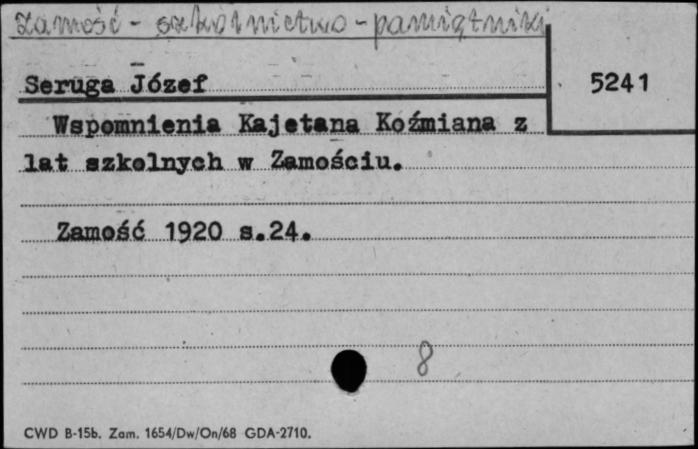 Zamość - szkolnictwo - pamiętniki
Seruga Józef
5241
Wspomnienia Kajetana Koźmiana z
lat szkolnych w Zamościu.
Zamość 1920 s.24.
8
CWD B-15b. Zam. 1654/Dw/On/68 GDA-2710.